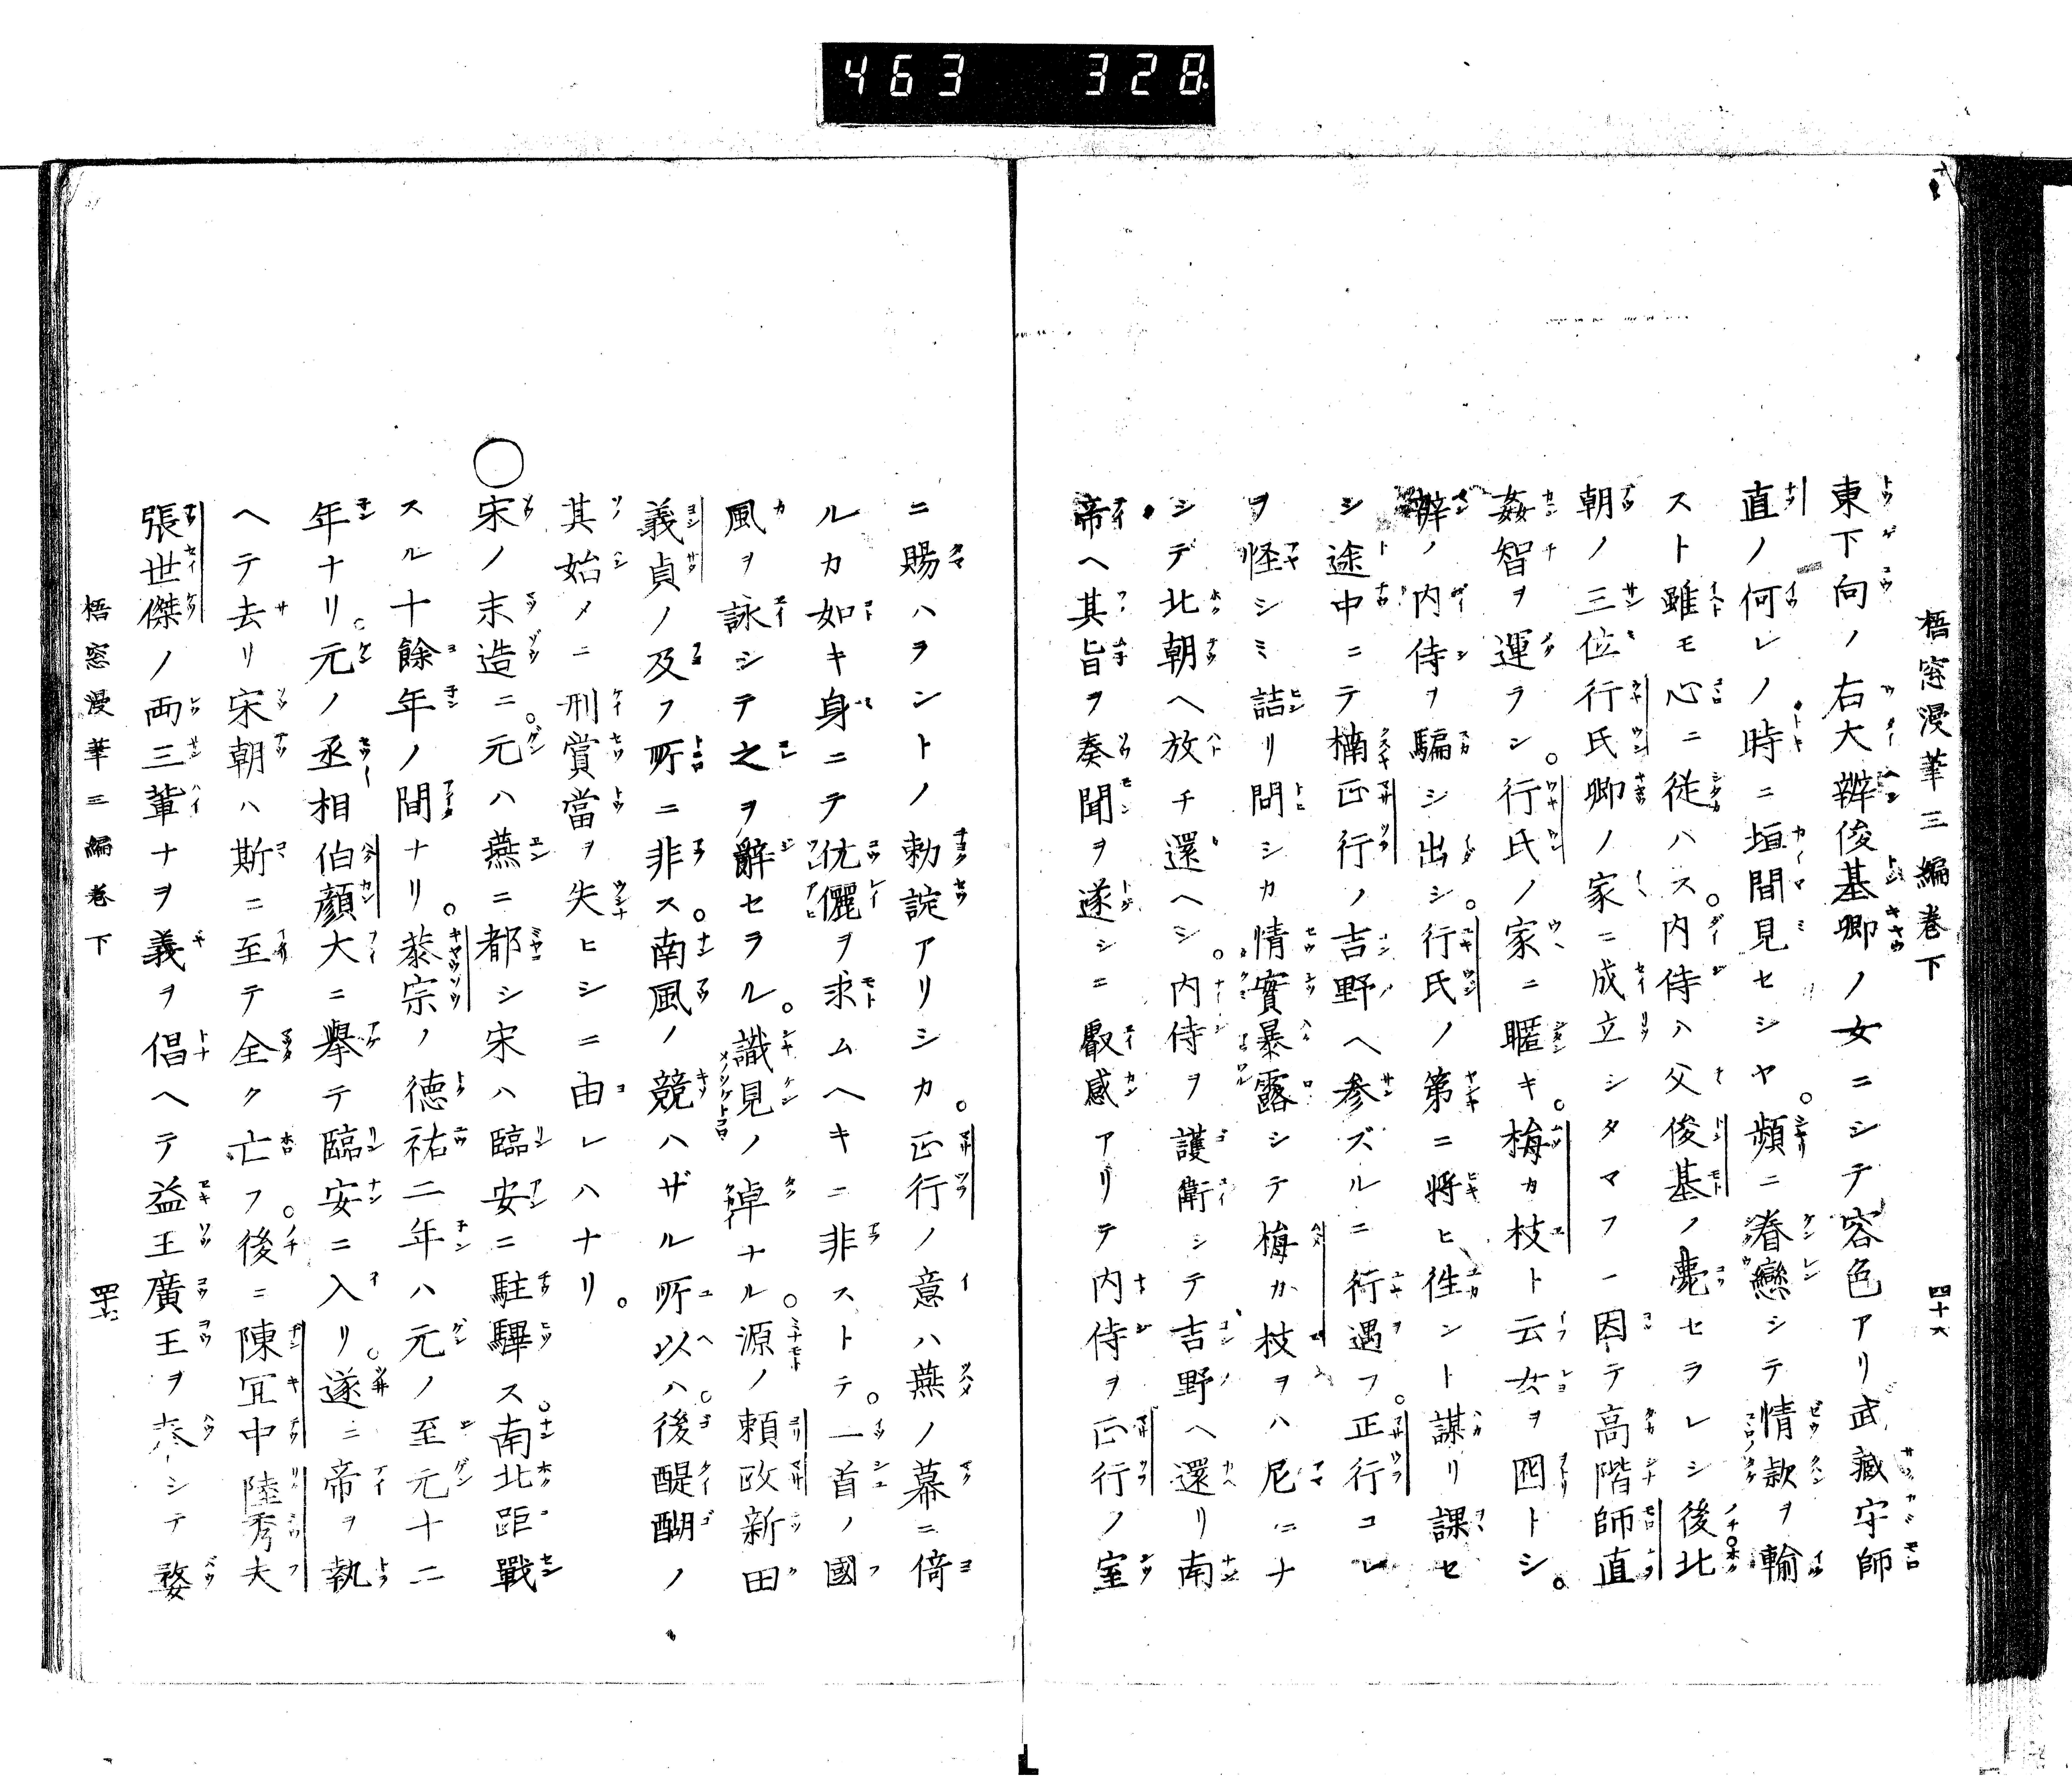 463 328
梧窓漫筆三編巻下
四十六
東下向ノ右大辨俊基卿ノ女ニシテ容色アリ武藏守師
直ノ何レノ時ニ垣間見セシヤ。頻ニ眷戀シテ情款ヲ輸
スト雖モ心ニ從ハス。内侍ハ父俊基ノ薨セラレシ後北
朝ノ三位行氏卿ノ家ニ成立シタマフ一因テ高階師直
姦智ヲ運ラシ。行氏ノ家ニ暱キ。梅カ枝ト云女ヲ囮トシ。
辨ノ内侍ヲ騙シ出シ。行氏ノ第ニ將ヒ徃ント謀リ課セ
シ途中ニテ楠正行ノ吉野ヘ参ズルニ行遇フ。正行コレ
ヲ怪シミ詰リ問シカ情實暴露シテ梅カ枝ヲハ尼ニナ
シテ北朝ヘ放チ還ヘシ。内侍ヲ護衛シテ吉野ヘ還リ南
帝ヘ其旨ヲ奏聞ヲ遂シニ叡感アリテ内侍ヲ正行ノ室
ニ賜ハヲントノ勅諚アリシカ。正行ノ意ハ燕ノ幕ニ倚
ルカ如キ身ニテ伉儷ヲ求ムヘキニ非ストテ。一首ノ國
風ヲ詠シテ之ヲ辭セラル。識見ノ卓ナル。源ノ頼政新田
義貞ノ及フ所ニ非ス。南風ノ競ハザル所以ハ。後醍醐ノ
其始メニ刑賞當ヲ失ヒシニ由レハナリ。
○宋ノ末造ニ。元ハ燕ニ都シ宋ハ臨安ニ駐驆ス。南北距戰
スル十餘年ノ間ナリ。恭宗ノ德祐二年ハ元ノ至元十二
年ナリ。元ノ丞相伯顏大ニ擧テ臨安ニ入リ。遂ニ帝ヲ執
ヘテ去リ宋朝ハ斯ニ至テ全ク亡フ。後ニ陳冝中陸秀夫
張世傑ノ両三輩ナヲ義ヲ倡ヘテ益王廣王ヲ奉シテ婺
梧窓漫筆三編巻下
四十七